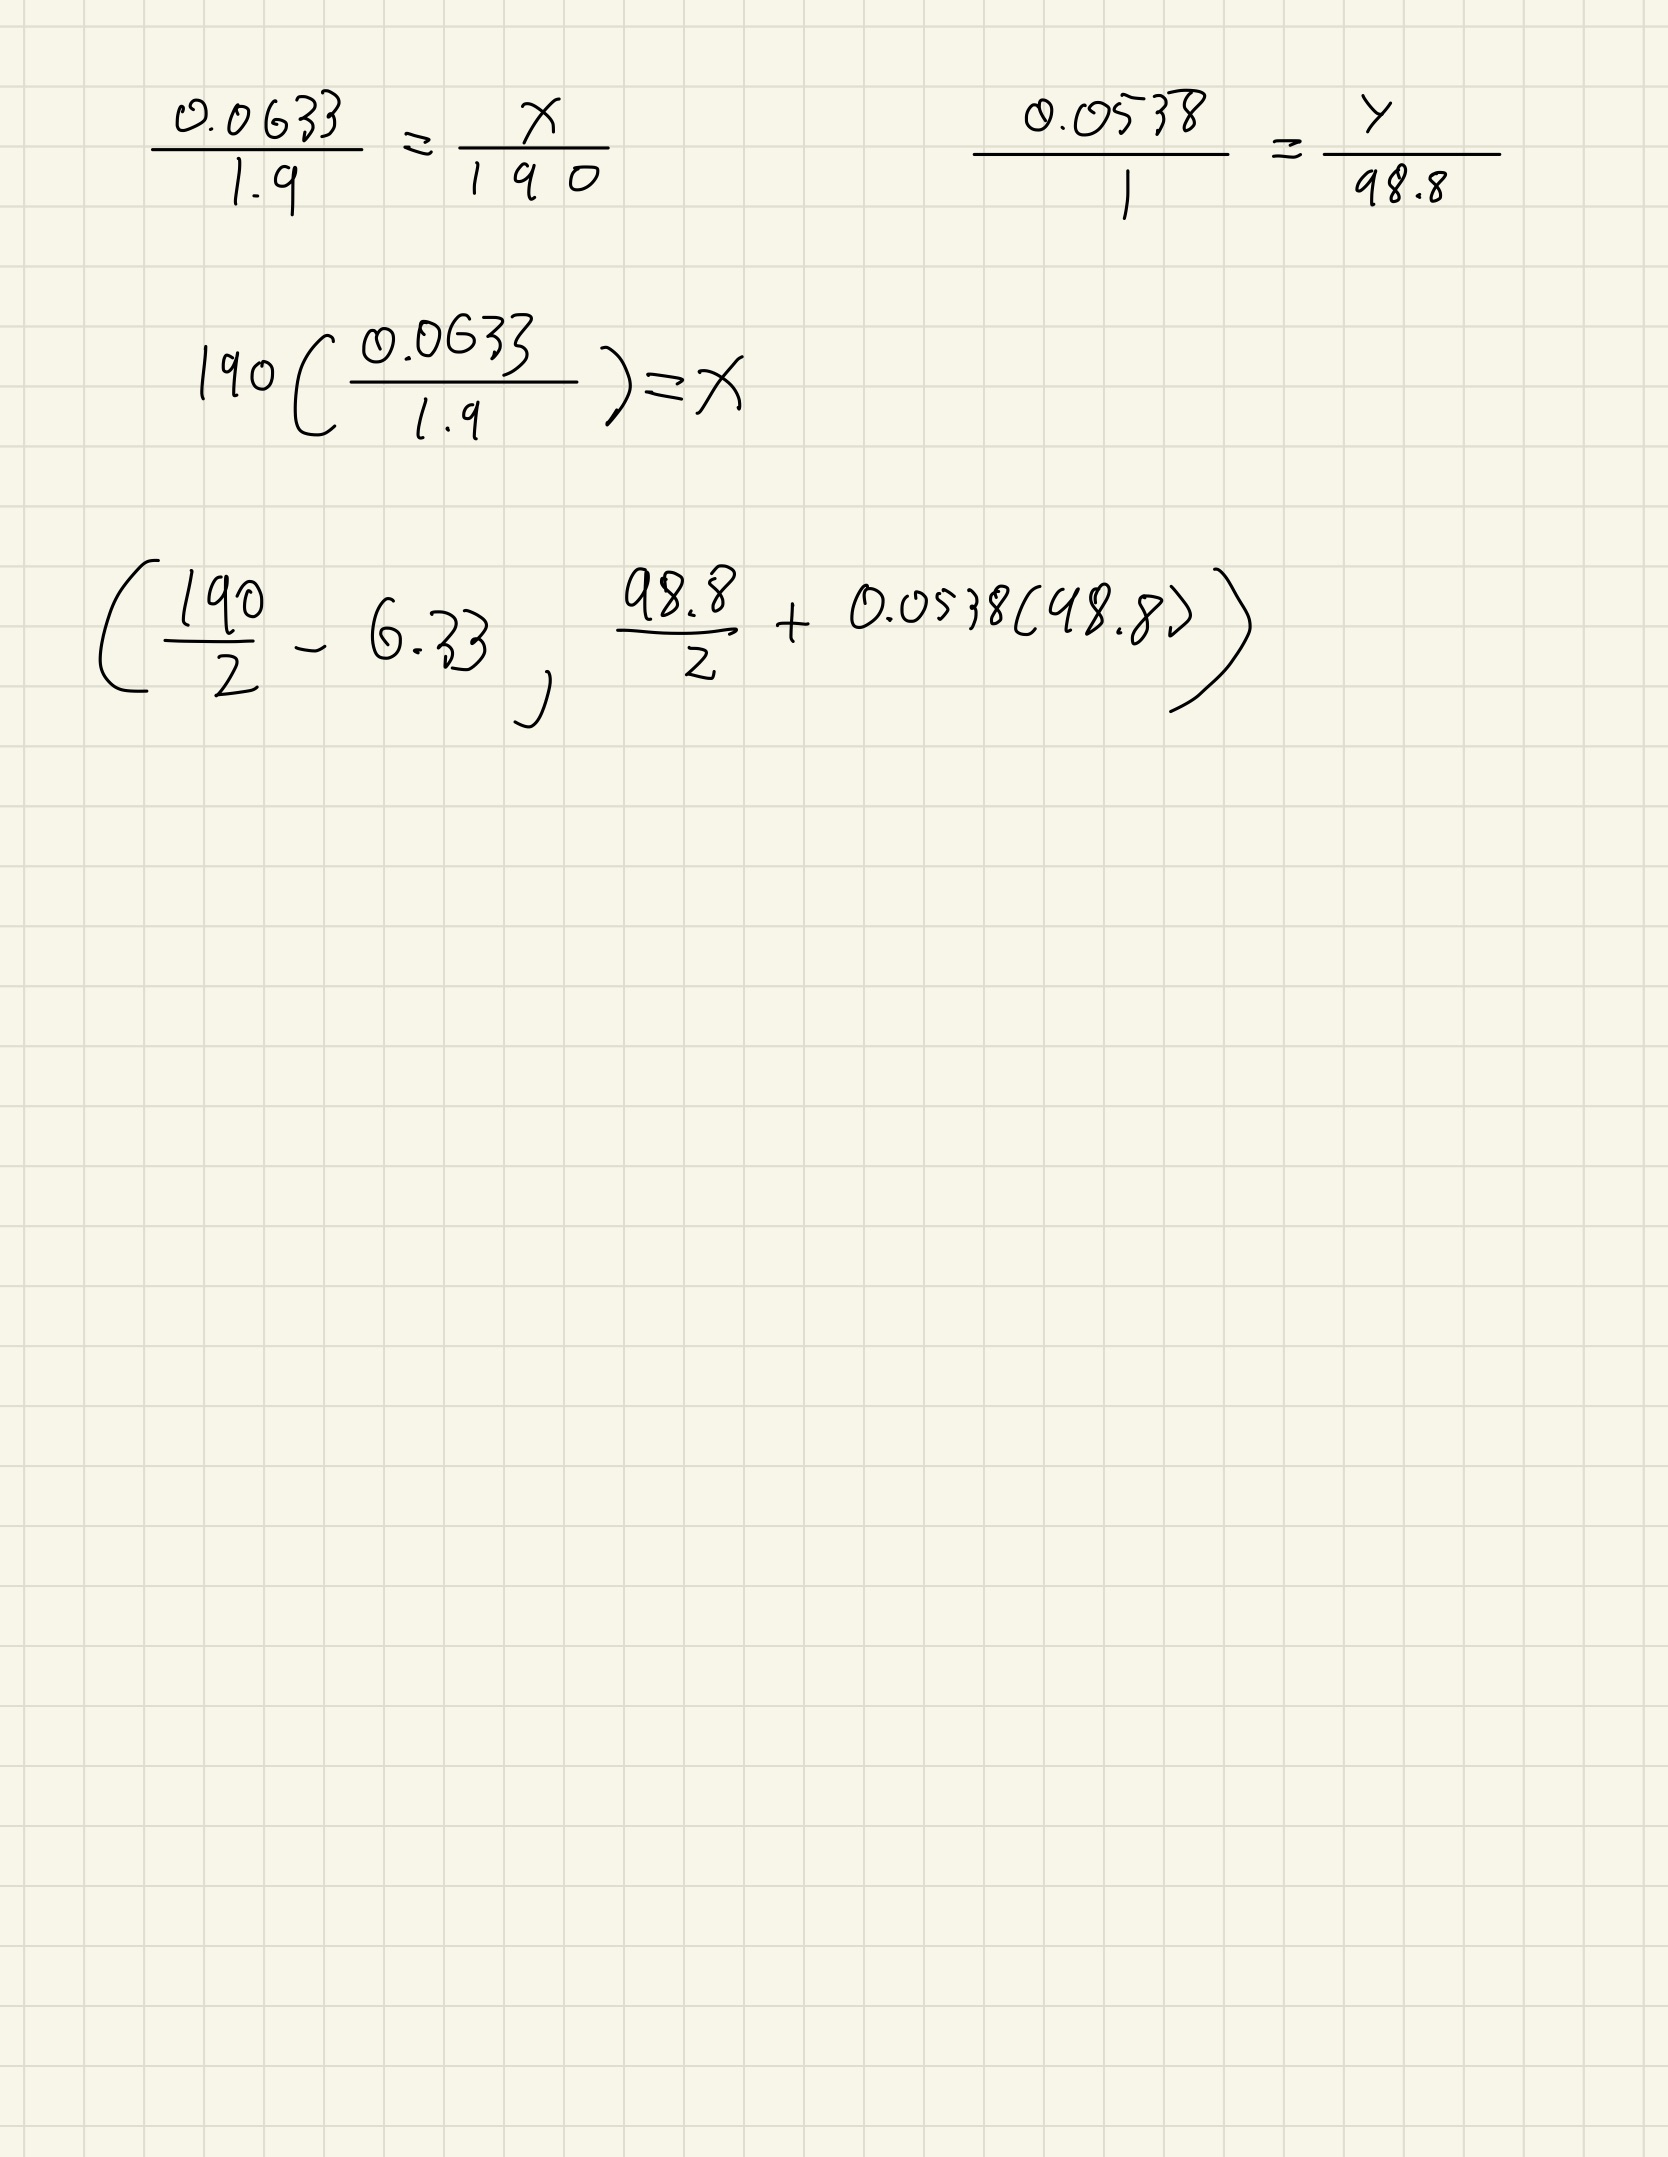 0.0633/1.9 = x/190    0.0538/1 = y/98.8
190(0.0633/1.9) = x
(190/2 - 6.33, 98.8/2 + 0.0538(98.8))